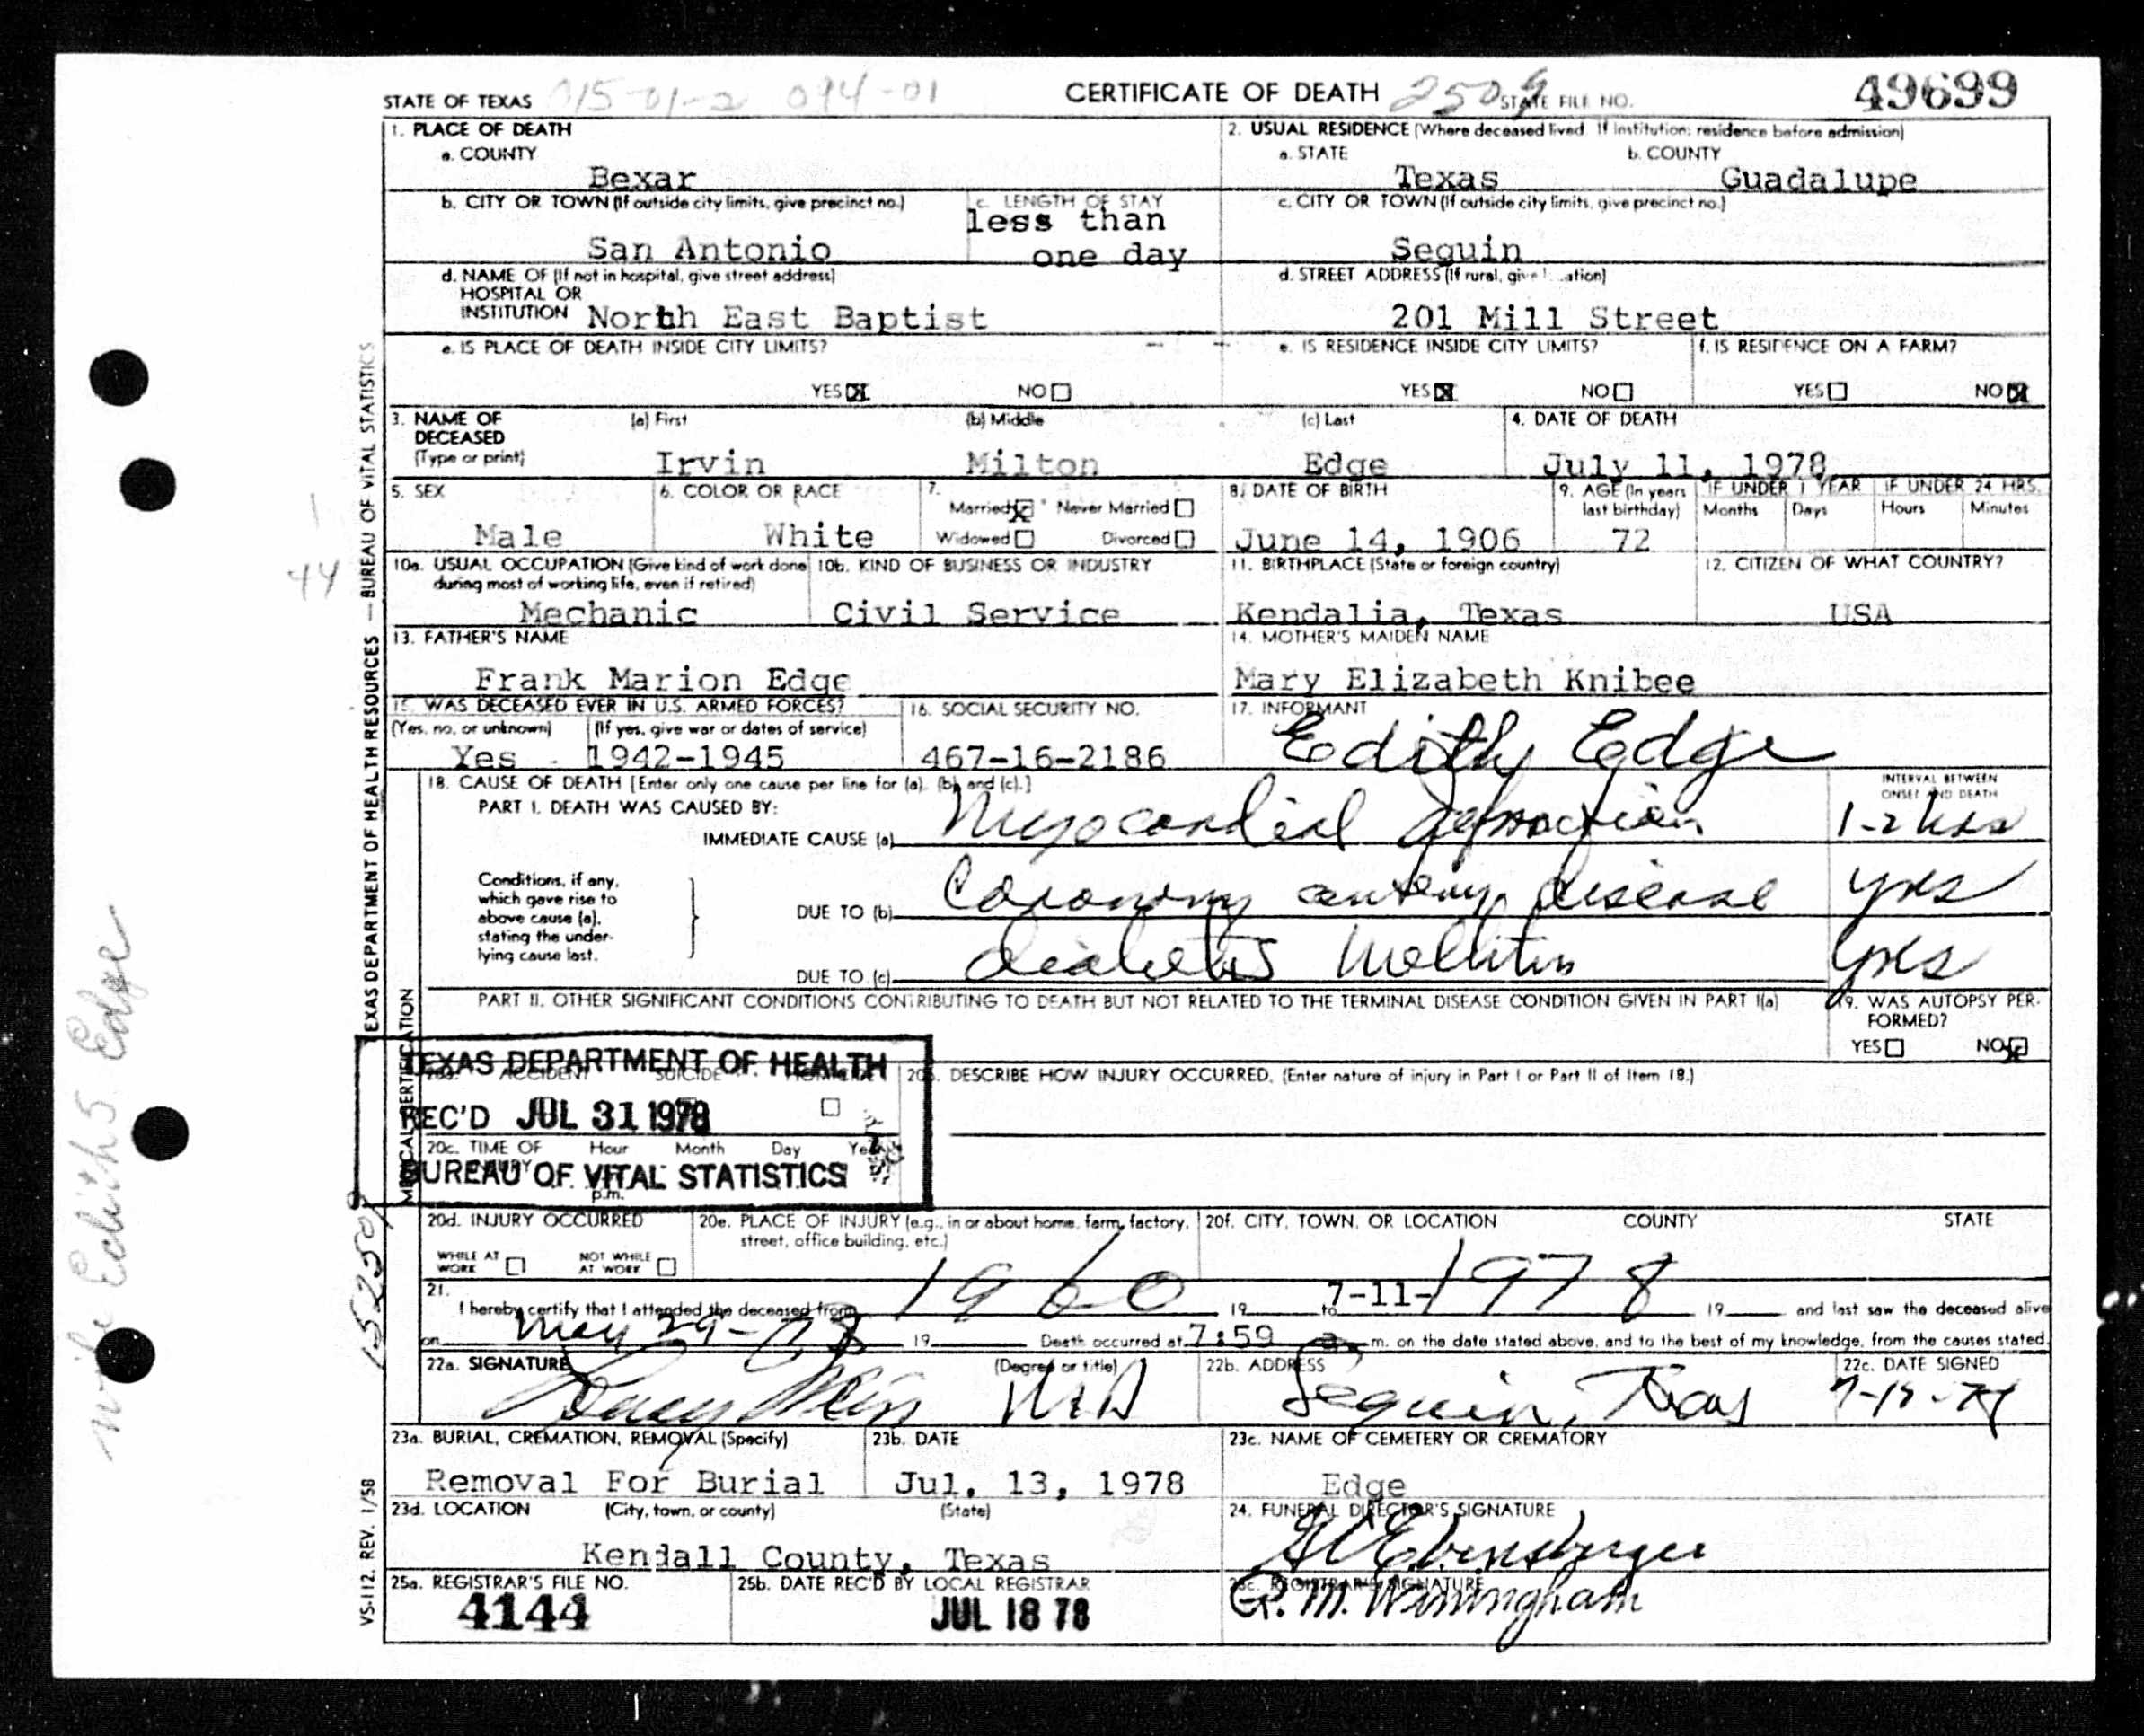 STATE OF TEXAS 015-01-2 094-01 CERTIFICATE OF DEATH 2509 STATE FILE NO. 49699
1. PLACE OF DEATH
a. COUNTY
Bexar
2. USUAL RESIDENCE (Where deceased lived If institution: residence before admission)
a. STATE b. COUNTY
Texas Guadalupe
b. CITY OR TOWN (If outside city limits, give precinct no.)
San Antonio
c. LENGTH OF STAY
less than
one day
c. CITY OR TOWN (If outside city limits, give precinct no.)
Seguin
d. NAME OF (If not in hospital, give street address)
HOSPITAL OR
INSTITUTION North East Baptist
d. STREET ADDRESS (If rural, give
201 Mill Street
e. IS PLACE OF DEATH INSIDE CITY LIMITS?
YES NO
e. IS RESIDENCE INSIDE CITY LIMITS?
YES NO
f. IS RESIDENCE ON A FARM?
YES NO
3. NAME OF DECEASED (Type or print)
(a) First (b) Middle (c) Last
Irvin Milton Edge
4. DATE OF DEATH
July 11, 1978
5. SEX
Male
6. COLOR OR RACE
White
7.
Married Never Married
Widowed Divorced
8. DATE OF BIRTH
June 14, 1906
9. AGE (In years last birthday)
72
IF UNDER 1 YEAR IF UNDER 24 HRS.
Months Days Hours Minutes
10a. USUAL OCCUPATION (Give kind of work done
during most of working life, even if retired)
Mechanic
10b. KIND OF BUSINESS OR INDUSTRY
Civil Service
11. BIRTHPLACE (State or foreign country)
Kendalia, Texas
12. CITIZEN OF WHAT COUNTRY?
USA
13. FATHER'S NAME
Frank Marion Edge
14. MOTHER'S MAIDEN NAME
Mary Elizabeth Knibee
15. WAS DECEASED EVER IN U.S. ARMED FORCES?
(Yes, no, or unknown) (If yes, give war or dates of service)
Yes 1942-1945
16. SOCIAL SECURITY NO.
467-16-2186
17. INFORMANT
Edith Edge
18. CAUSE OF DEATH [Enter only one cause per line for (a), (b), and (c).]
PART I. DEATH WAS CAUSED BY:
INTERVAL BETWEEN
ONSET AND DEATH
IMMEDIATE CAUSE (a) Myocardial Infraction 1-2 hrs
Conditions, if any,
which gave rise to
above cause (a),
stating the under-
lying cause last.
DUE TO (b) Coronary artery disease yrs
DUE TO (c) diabetes Mellitus yrs
PART II. OTHER SIGNIFICANT CONDITIONS CONTRIBUTING TO DEATH BUT NOT RELATED TO THE TERMINAL DISEASE CONDITION GIVEN IN PART I(a)
19. WAS AUTOPSY PER-
FORMED?
YES NO
TEXAS DEPARTMENT OF HEALTH
REC'D JUL 31 1978
BUREAU OF VITAL STATISTICS
20a. ACCIDENT SUICIDE
20b. DESCRIBE HOW INJURY OCCURRED. (Enter nature of injury in Part I or Part II of Item 18.)
20c. TIME OF Hour Month Day Year
p.m.
20d. INJURY OCCURRED
WHILE AT WORK NOT WHILE AT WORK
20e. PLACE OF INJURY (e.g., in or about home, farm, factory,
street, office building, etc.)
20f. CITY, TOWN, OR LOCATION COUNTY STATE
21.
I hereby certify that I attended the deceased from 1960 19 to 7-11-1978 19 and last saw the deceased alive
on May 29-78 19 Death occurred at 7:59 a m. on the date stated above, and to the best of my knowledge, from the causes stated.
22a. SIGNATURE (Degree or title)
MD
22b. ADDRESS
Seguin, Texas
22c. DATE SIGNED
23a. BURIAL, CREMATION, REMOVAL (Specify)
Removal For Burial
23b. DATE
Jul. 13, 1978
23c. NAME OF CEMETERY OR CREMATORY
Edge
23d. LOCATION (City, town, or county) (State)
Kendall County, Texas
24. FUNERAL DIRECTOR'S SIGNATURE
25a. REGISTRAR'S FILE NO.
4144
25b. DATE REC'D BY LOCAL REGISTRAR
JUL 18 78
25c. REGISTRAR'S SIGNATURE
TEXAS DEPARTMENT OF HEALTH RESOURCES — BUREAU OF VITAL STATISTICS
MEDICAL CERTIFICATION
VS-112, REV. 1/58
44
152509
wife Edith S. Edge